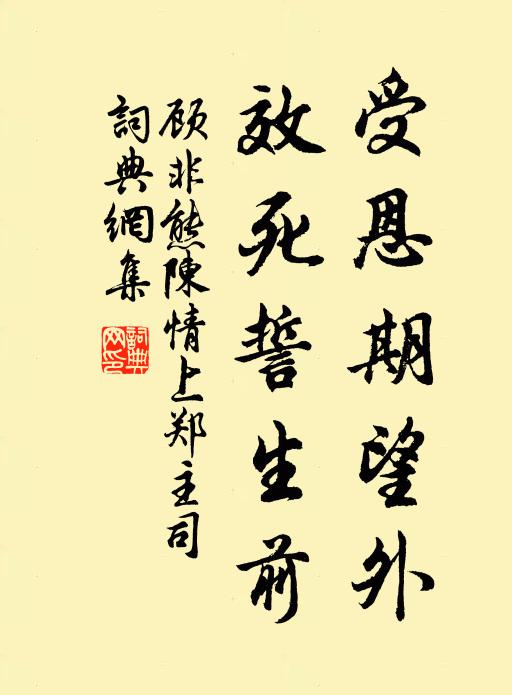 受恩期望外
效死誓生前
顾非熊陳情上郑主司
詞典網集
詞典网印